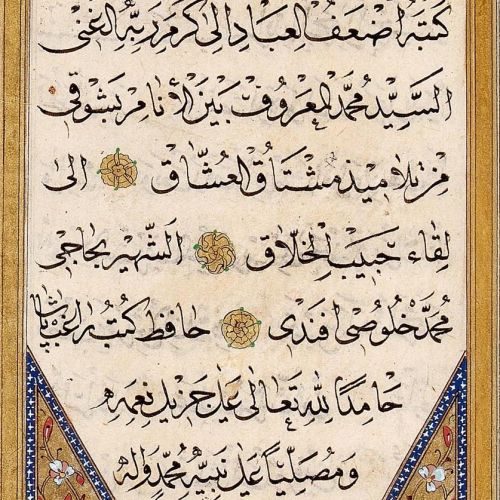 كتبه اضعف العباد الى كرم ربه الغنى
السيد محمد المعروف بين الأنام بشوقى
من تلاميذ مشتاق العشاق الى
لقاء حبيب الخلاق الشهير بحاجى
محمد خلوصى افندى حافظ كتب راغب پاشا
حامدا لله تعالى على جزيل نعمه
ومصليا على نبيه محمد وآله